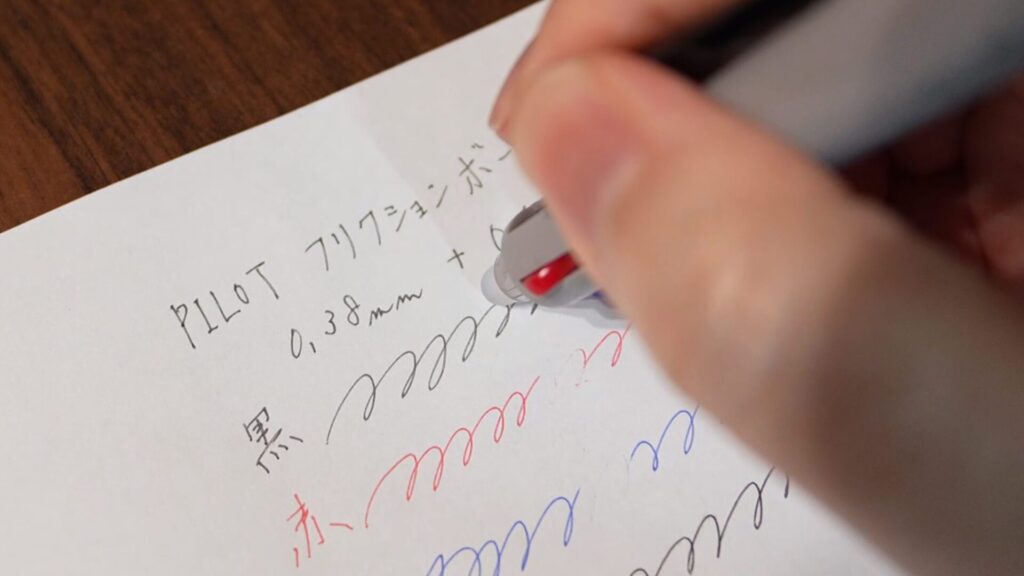 PILOT フリクションボー
0.38mm +
黒
赤